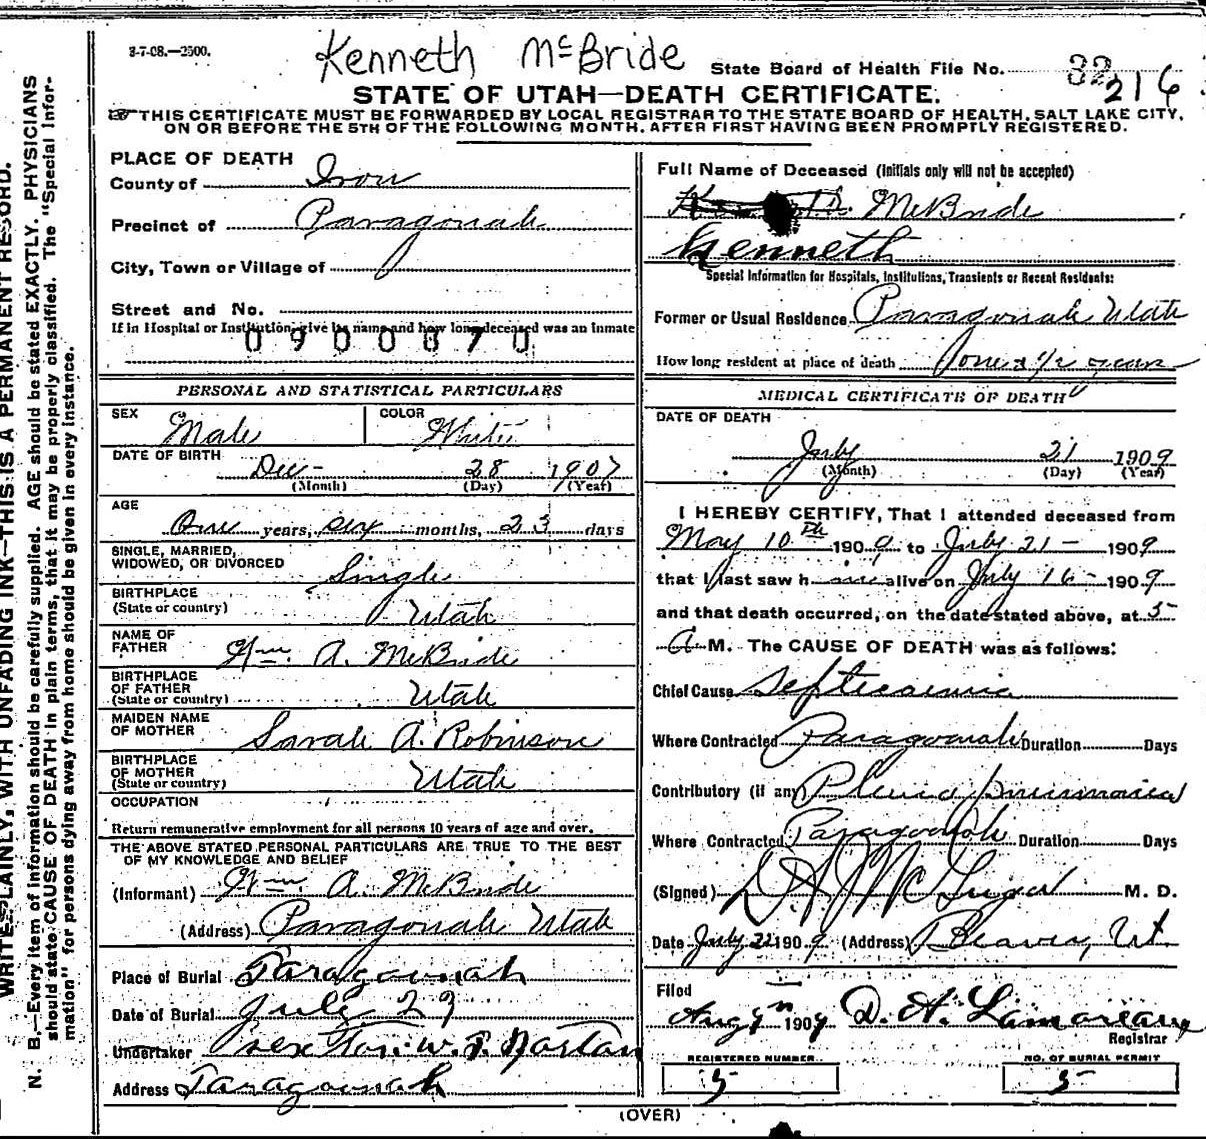 3-7-08.—2500.
Kenneth McBride
State Board of Health File No. 32 216
STATE OF UTAH—DEATH CERTIFICATE.
THIS CERTIFICATE MUST BE FORWARDED BY LOCAL REGISTRAR TO THE STATE BOARD OF HEALTH, SALT LAKE CITY,
ON OR BEFORE THE 5TH OF THE FOLLOWING MONTH, AFTER FIRST HAVING BEEN PROMPTLY REGISTERED.
WRITE PLAINLY, WITH UNFADING INK—THIS IS A PERMANENT RECORD.
N. B.—Every item of information should be carefully supplied. AGE should be stated EXACTLY. PHYSICIANS
should state CAUSE OF DEATH in plain terms, that it may be properly classified. The "Special Infor-
mation" for persons dying away from home should be given in every instance.
PLACE OF DEATH
County of Iron
Precinct of Paragonah
City, Town or Village of
Street and No.
If in Hospital or Institution, give its name and how long deceased was an inmate
0900870
PERSONAL AND STATISTICAL PARTICULARS
SEX Male COLOR White
DATE OF BIRTH
Dec 28 1907
(Month) (Day) (Year)
AGE
One years, six months, 23 days
SINGLE, MARRIED,
WIDOWED, OR DIVORCED Single
BIRTHPLACE
(State or country) Utah
NAME OF
FATHER Wm. A. McBride
BIRTHPLACE
OF FATHER
(State or country) Utah
MAIDEN NAME
OF MOTHER Sarah A. Robinson
BIRTHPLACE
OF MOTHER
(State or country) Utah
OCCUPATION
Return remunerative employment for all persons 10 years of age and over.
THE ABOVE STATED PERSONAL PARTICULARS ARE TRUE TO THE BEST
OF MY KNOWLEDGE AND BELIEF
(Informant) Wm. A. McBride
(Address) Paragonah Utah
Place of Burial Paragoonah
Date of Burial July 23
Undertaker sexton W. P.
Address Paragoonah
Full Name of Deceased (Initials only will not be accepted)
McBride
Kenneth
Special Information for Hospitals, Institutions, Transients or Recent Residents:
Former or Usual Residence Paragonah Utah
How long resident at place of death one & 1/2 years
MEDICAL CERTIFICATE OF DEATH
DATE OF DEATH
July 21 1909
(Month) (Day) (Year)
I HEREBY CERTIFY, That I attended deceased from
May 10th 1909 to July 21 1909
that I last saw him alive on July 16 1909
and that death occurred, on the date stated above, at 5
A M. The CAUSE OF DEATH was as follows:
Chief Cause Septicaemia
Where Contracted Paragonah Duration Days
Contributory (if any) pneumonia
Where Contracted Paragonah Duration Days
(Signed) M. D.
Date July 22 1909 (Address) Beaver, Ut.
Filed
Aug 1909 D. A. Lamoreaux
Registrar
REGISTERED NUMBER
5
NO. OF BURIAL PERMIT
5
(OVER)